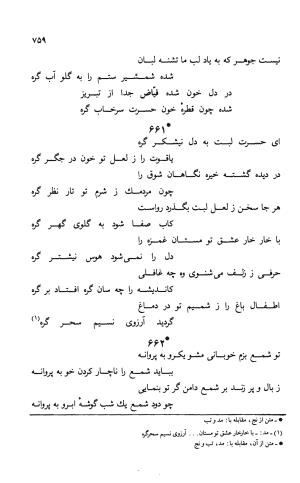 ۷۵۹
نیست جوهر که به یاد لب ما تشنه لبان
شده شمشیر ستم را به گلو آب گره
در دل خون شده فیّاض جدا از تبریز
شده چون قطرۀ خون حسرت سرخاب گره
۶۶۱*
ای حسرت لبت به دل نیشکر گره
یاقوت را ز لعل تو خون در جگر گره
در دیده گشته خیره نگاهان شوق را
چون مردمک ز شرم تو تار نظر گره
هر جا سخن ز لعل لبت بگذرد رواست
کاب صفا شود به گلوی گهر گره
با خار خار عشق تو مستان غمزه را
دل را نمی‌شود هوس نیشتر گره
حرفی ز زلف می‌شنوی وه چه غافلی
کاندیشه را چه سان گره افتاد بر گره
اطفال باغ را ز شمیم تو در دماغ
گردید آرزوی نسیم سحر گره(۱)
۶۶۲*
تو شمع بزم خوبانی مشو یکرو به پروانه
بباید شمع را ناچار کردن خو به پروانه
ز بال و پر زند بر شمع دامن گر تو بنمایی
چو دود شمع یک شب گوشۀ ابرو به پروانه
* - متن از نج، مقابله با: مد و تب
(۱) - مد: ـ با خارخار عشق تو مستان... آرزوی نسیم سحرگره
* - متن از آن، مقابله با: مد، تب و نج